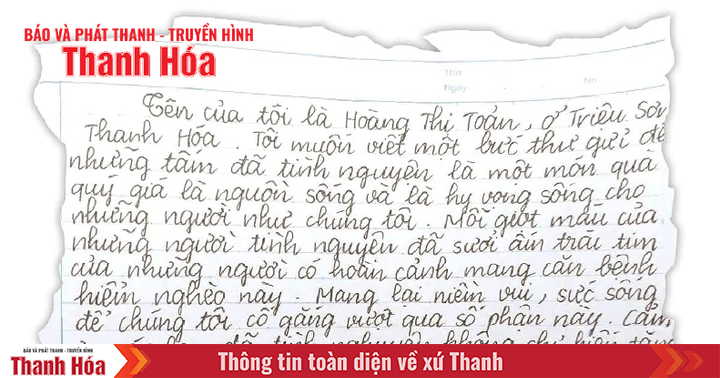 BÁO VÀ PHÁT THANH - TRUYỀN HÌNH
Thanh Hóa
Thứ
Ngày No
Tên của tôi là Hoàng Thị Toản, ở Triệu Sơn
Thanh Hóa. Tôi muốn viết một bức thư gửi để
những tâm đã tình nguyện là một món quà
quý giá là nguồn sống và là hy vọng sống cho
những người như chúng tôi. Mỗi giọt máu của
những người tình nguyện đã sưởi ấm trái tim
của những người có hoàn cảnh mang căn bệnh
hiểm nghèo này. Mang lại niềm vui, sức sống
để chúng tôi cố gắng vượt qua số phận này. Cảm
đã tình nguyện không
BÁO VÀ PHÁT THANH - TRUYỀN HÌNH
Thanh Hóa
Thông tin toàn diện về xứ Thanh